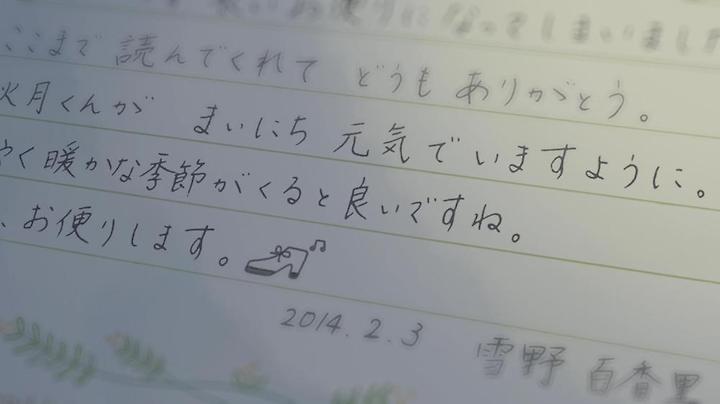 いお便りになってしまいまし
ここまで 読んでくれて どうも ありがとう。
秋月くんが まいにち 元気でいますように。
やく暖かな季節がくると良いですね。
、お便りします。
2014.2.3
雪野 百香里